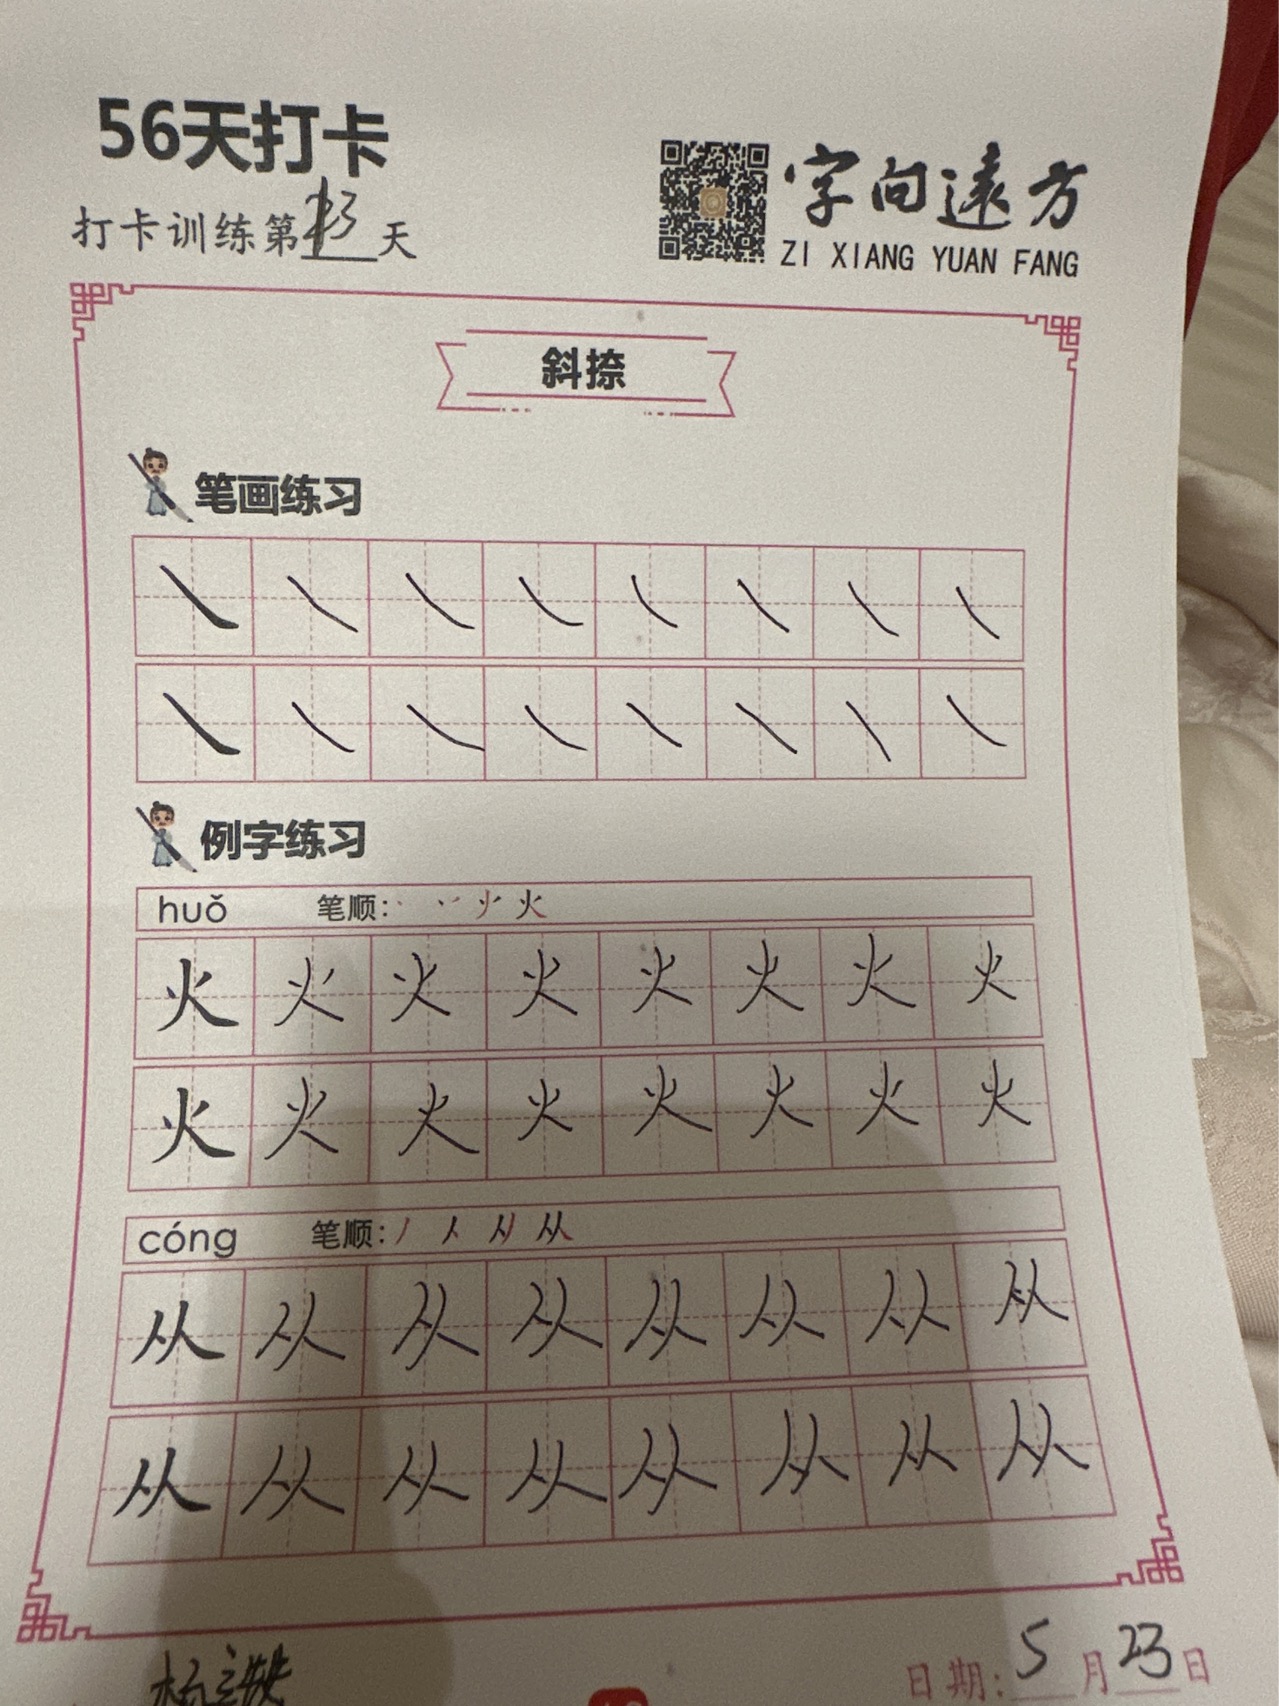 56天打卡
字向遠方
打卡训练第 天
ZI XIANG YUAN FANG
斜捺
笔画练习
例字练习
huǒ 笔顺: 火
火 火 火 火 火 火 火 火
火 火 火 火 火 火 火 火
cóng 笔顺: 丿 人 从
从 从 从 从 从 从 从 从
从 从 从 从 从 从 从 从
日期: 5 月 23 日